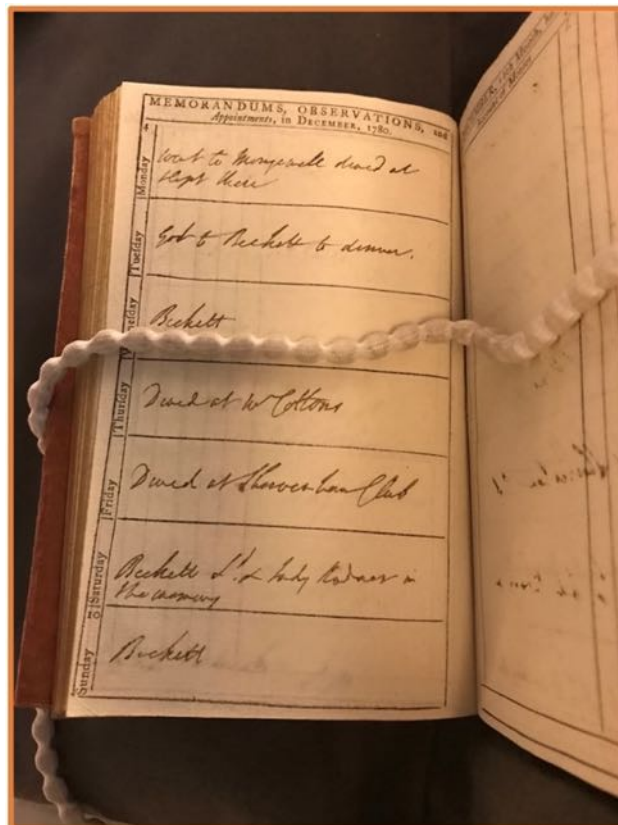 MEMORANDUMS, OBSERVATIONS, and
Appointments, in DECEMBER, 1780.
4
Monday
Went to Mongewell dined at
slept there
Tuesday
Got to Beckett to dinner.
Beckett
Thursday
Dined at Mr Cottons
Friday
Dined at Club
Saturday
Beckett Ld. & Lady Radnor in
the evening
10
Sunday
Beckett